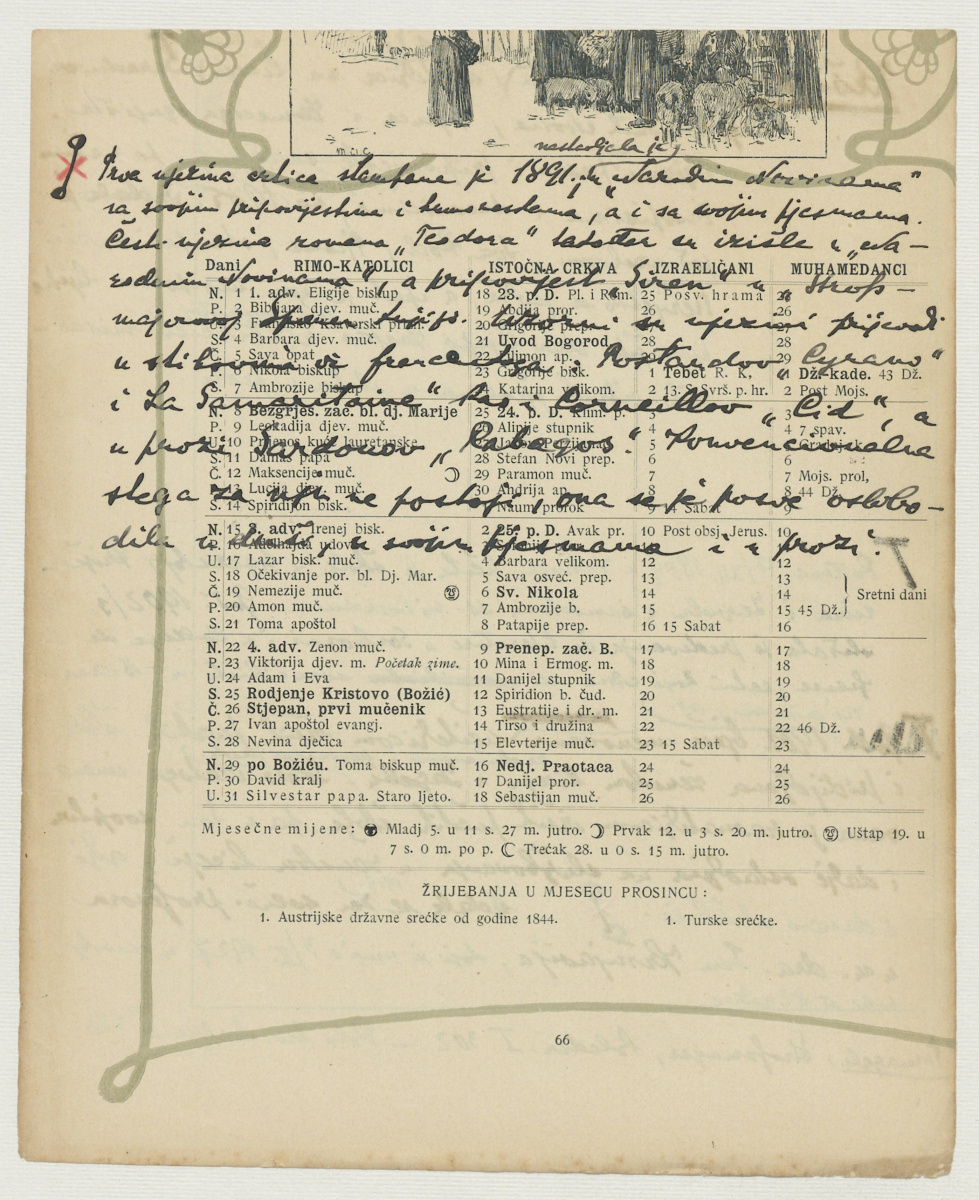 nastavlja je
Prva njezina crtica štampana je 1891. u „Narodnim Novinama"
sa svojim pripovijestima i humoreskama, a i sa svojim pjesmama.
Česti njezina romana „Teodora" također su izišle u „Na-
rodnim Novinama", a pripovijest „Siren" u „Stros-
su njezini prijevodi
u stihovima iz francuskoga: Rostandov „Cyrano"
i „La Samaritaine" kao i Corneillov „Cid", a
u prozi Sardouov „Rabagas". Konvencionalna
stega za nju ne postoji, ona se je posve oslobo-
dila u svojim pjesmama i u prozi.
Dani RIMO-KATOLICI ISTOČNA CRKVA IZRAELIČANI MUHAMEDANCI
N. 1 1. adv. Eligije biskup 18 23. p. D. Pl. i Rom. 25 Posv. hrama
P. 2 Bibijana djev. muč. 19 Abdija pror. 26 26
U. 3 Franjisko Ksaverski 20
S. 4 Barbara djev. muč. 21 Uvod Bogorod 28 28
Č. 5 Sava opat 22 Filimon ap. 29
P. 6 Nikola biskup 23 Grigorije bisk. 1 Tebet R. K, 1 Dž.-kade. 43 Dž.
S. 7 Ambrozije biskup 24 Katarina velikom. 2 13. S. Svrš. p. hr. 2 Post Mojs.
N. 8 Bezgrješ. zač. bl. dj. Marije 25 24. p. D. Klim. p. 3 3
P. 9 Leokadija djev. muč. 26 Alipije stupnik 4 4 7 spav.
U. 10 Prijenos kuće lauretanske 5
S. 11 Damas papa 28 Stefan Novi prep. 6 6
Č. 12 Maksencije muč. 29 Paramon muč. 7 7 Mojs. prol,
P. 13 Lucija djev. muč. 30 Andrija ap. 8 8 44 Dž.
S. 14 Spiridijon bisk. Naum prorok 9 14 Sabat 9
N. 15 3. adv. Irenej bisk. 2 25. p. D. Avak pr. 10 Post obsj. Jerus. 10
P. 16 Adelhajda udova
U. 17 Lazar bisk. muč. 4 Barbara velikom. 12 12
S. 18 Očekivanje por. bl. Dj. Mar. 5 Sava osveć. prep. 13 13
Č. 19 Nemezije muč. 6 Sv. Nikola 14 14 Sretni dani
P. 20 Amon muč. 7 Ambrozije b. 15 15 45 Dž.
S. 21 Toma apoštol 8 Patapije prep. 16 15 Sabat 16
N. 22 4. adv. Zenon muč. 9 Prenep. zač. B. 17 17
P. 23 Viktorija djev. m. Početak zime. 10 Mina i Ermog. m. 18 18
U. 24 Adam i Eva 11 Danijel stupnik 19 19
S. 25 Rodjenje Kristovo (Božić) 12 Spiridion b. čud. 20 20
Č. 26 Stjepan, prvi mučenik 13 Eustratije i dr. m. 21 21
P. 27 Ivan apoštol evangj. 14 Tirso i družina 22 22 46 Dž.
S. 28 Nevina dječica 15 Elevterije muč. 23 15 Sabat 23
N. 29 po Božiću. Toma biskup muč. 16 Nedj. Praotaca 24 24
P. 30 David kralj 17 Danijel pror. 25 25
U. 31 Silvestar papa. Staro ljeto. 18 Sebastijan muč. 26 26
Mjesečne mijene: Mladj 5. u 11 s. 27 m. jutro. Prvak 12. u 3 s. 20 m. jutro. Uštap 19. u
7 s. 0 m. po p. Trećak 28. u 0 s. 15 m. jutro.
ŽRIJEBANJA U MJESECU PROSINCU:
1. Austrijske državne srećke od godine 1844. 1. Turske srećke.
66